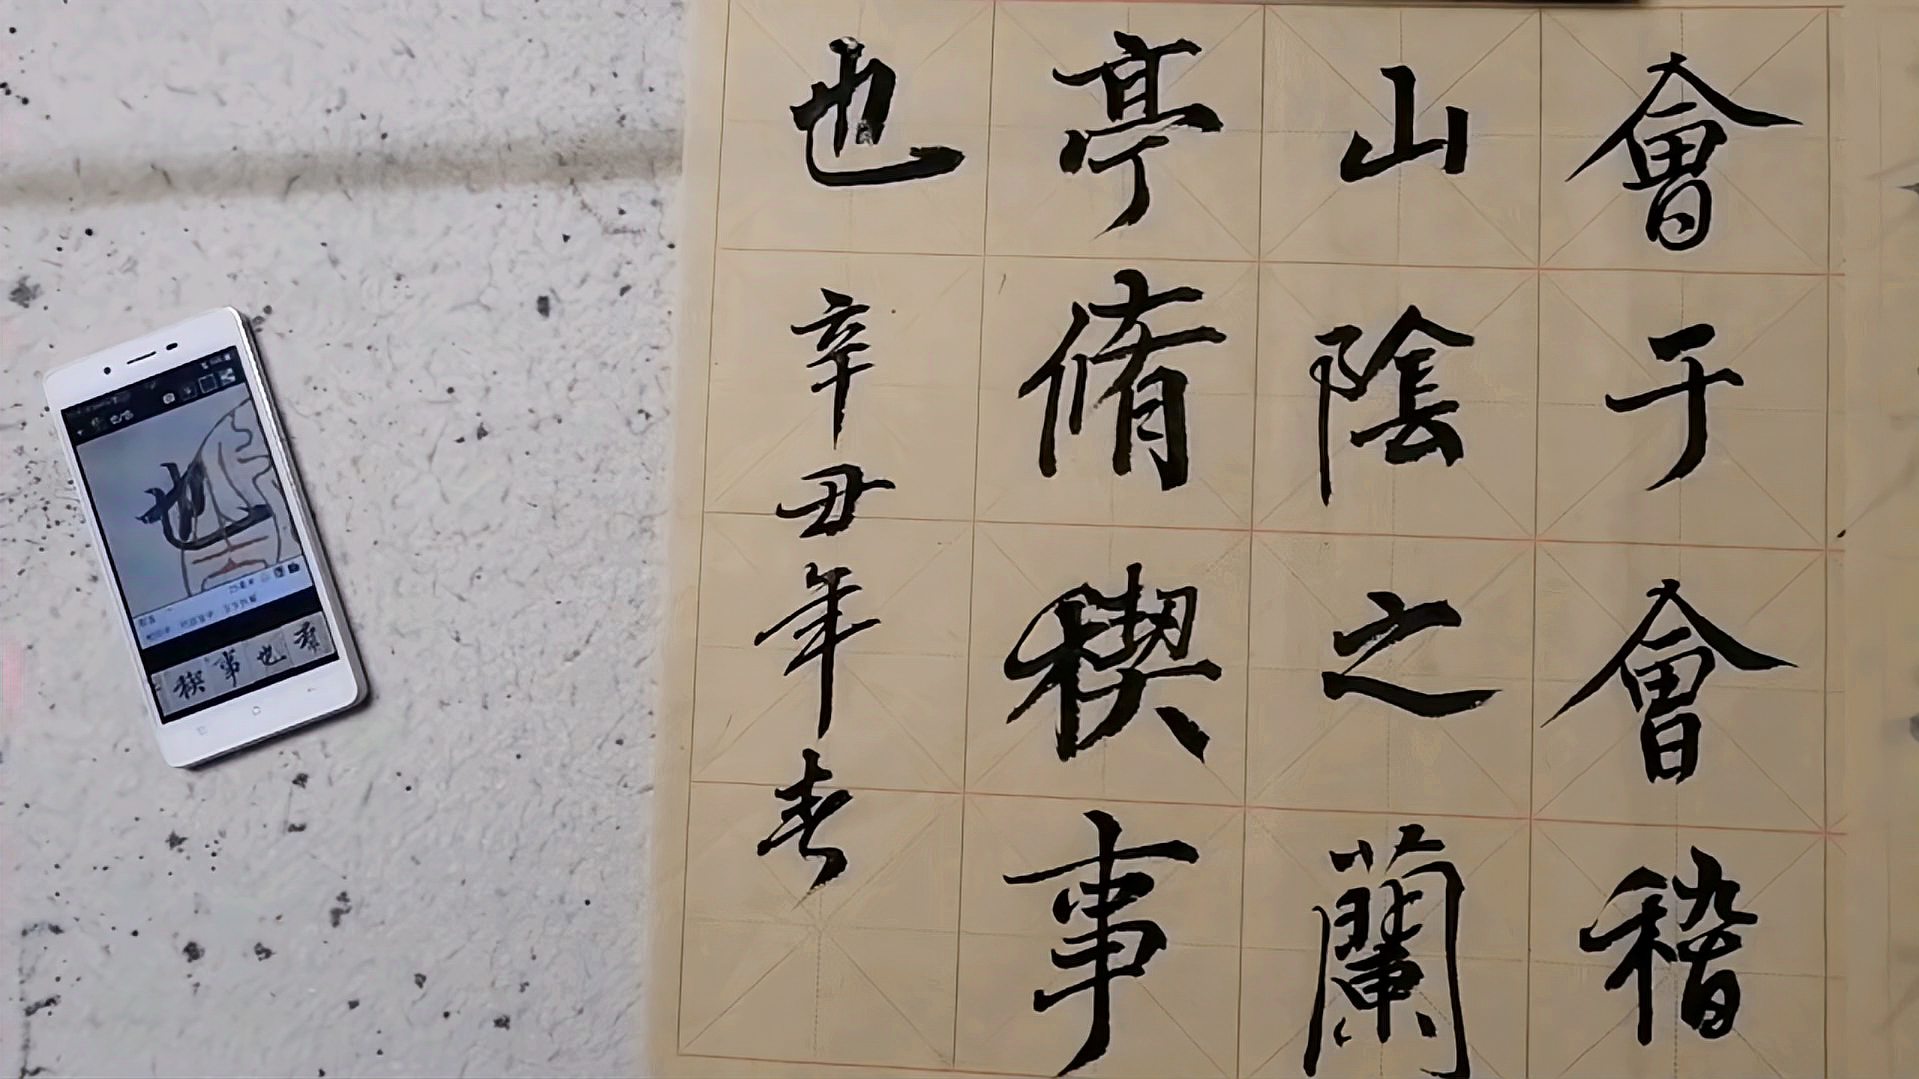 會于會稽
山陰之蘭
亭脩稧事
也辛丑年春
也
稧事也羣